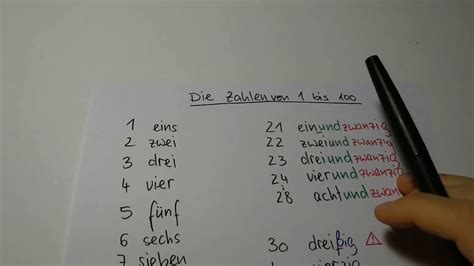 Die Zahlen von 1 bis 100
1 eins
2 zwei
3 drei
4 vier
5 fünf
6 sechs
7 sieben
21 einundzwanzig
22 zweiundzwanzig
23 dreiundzwanzig
24 vierundzwanzig
28 achtundzwan
30 dreißig
vierzig